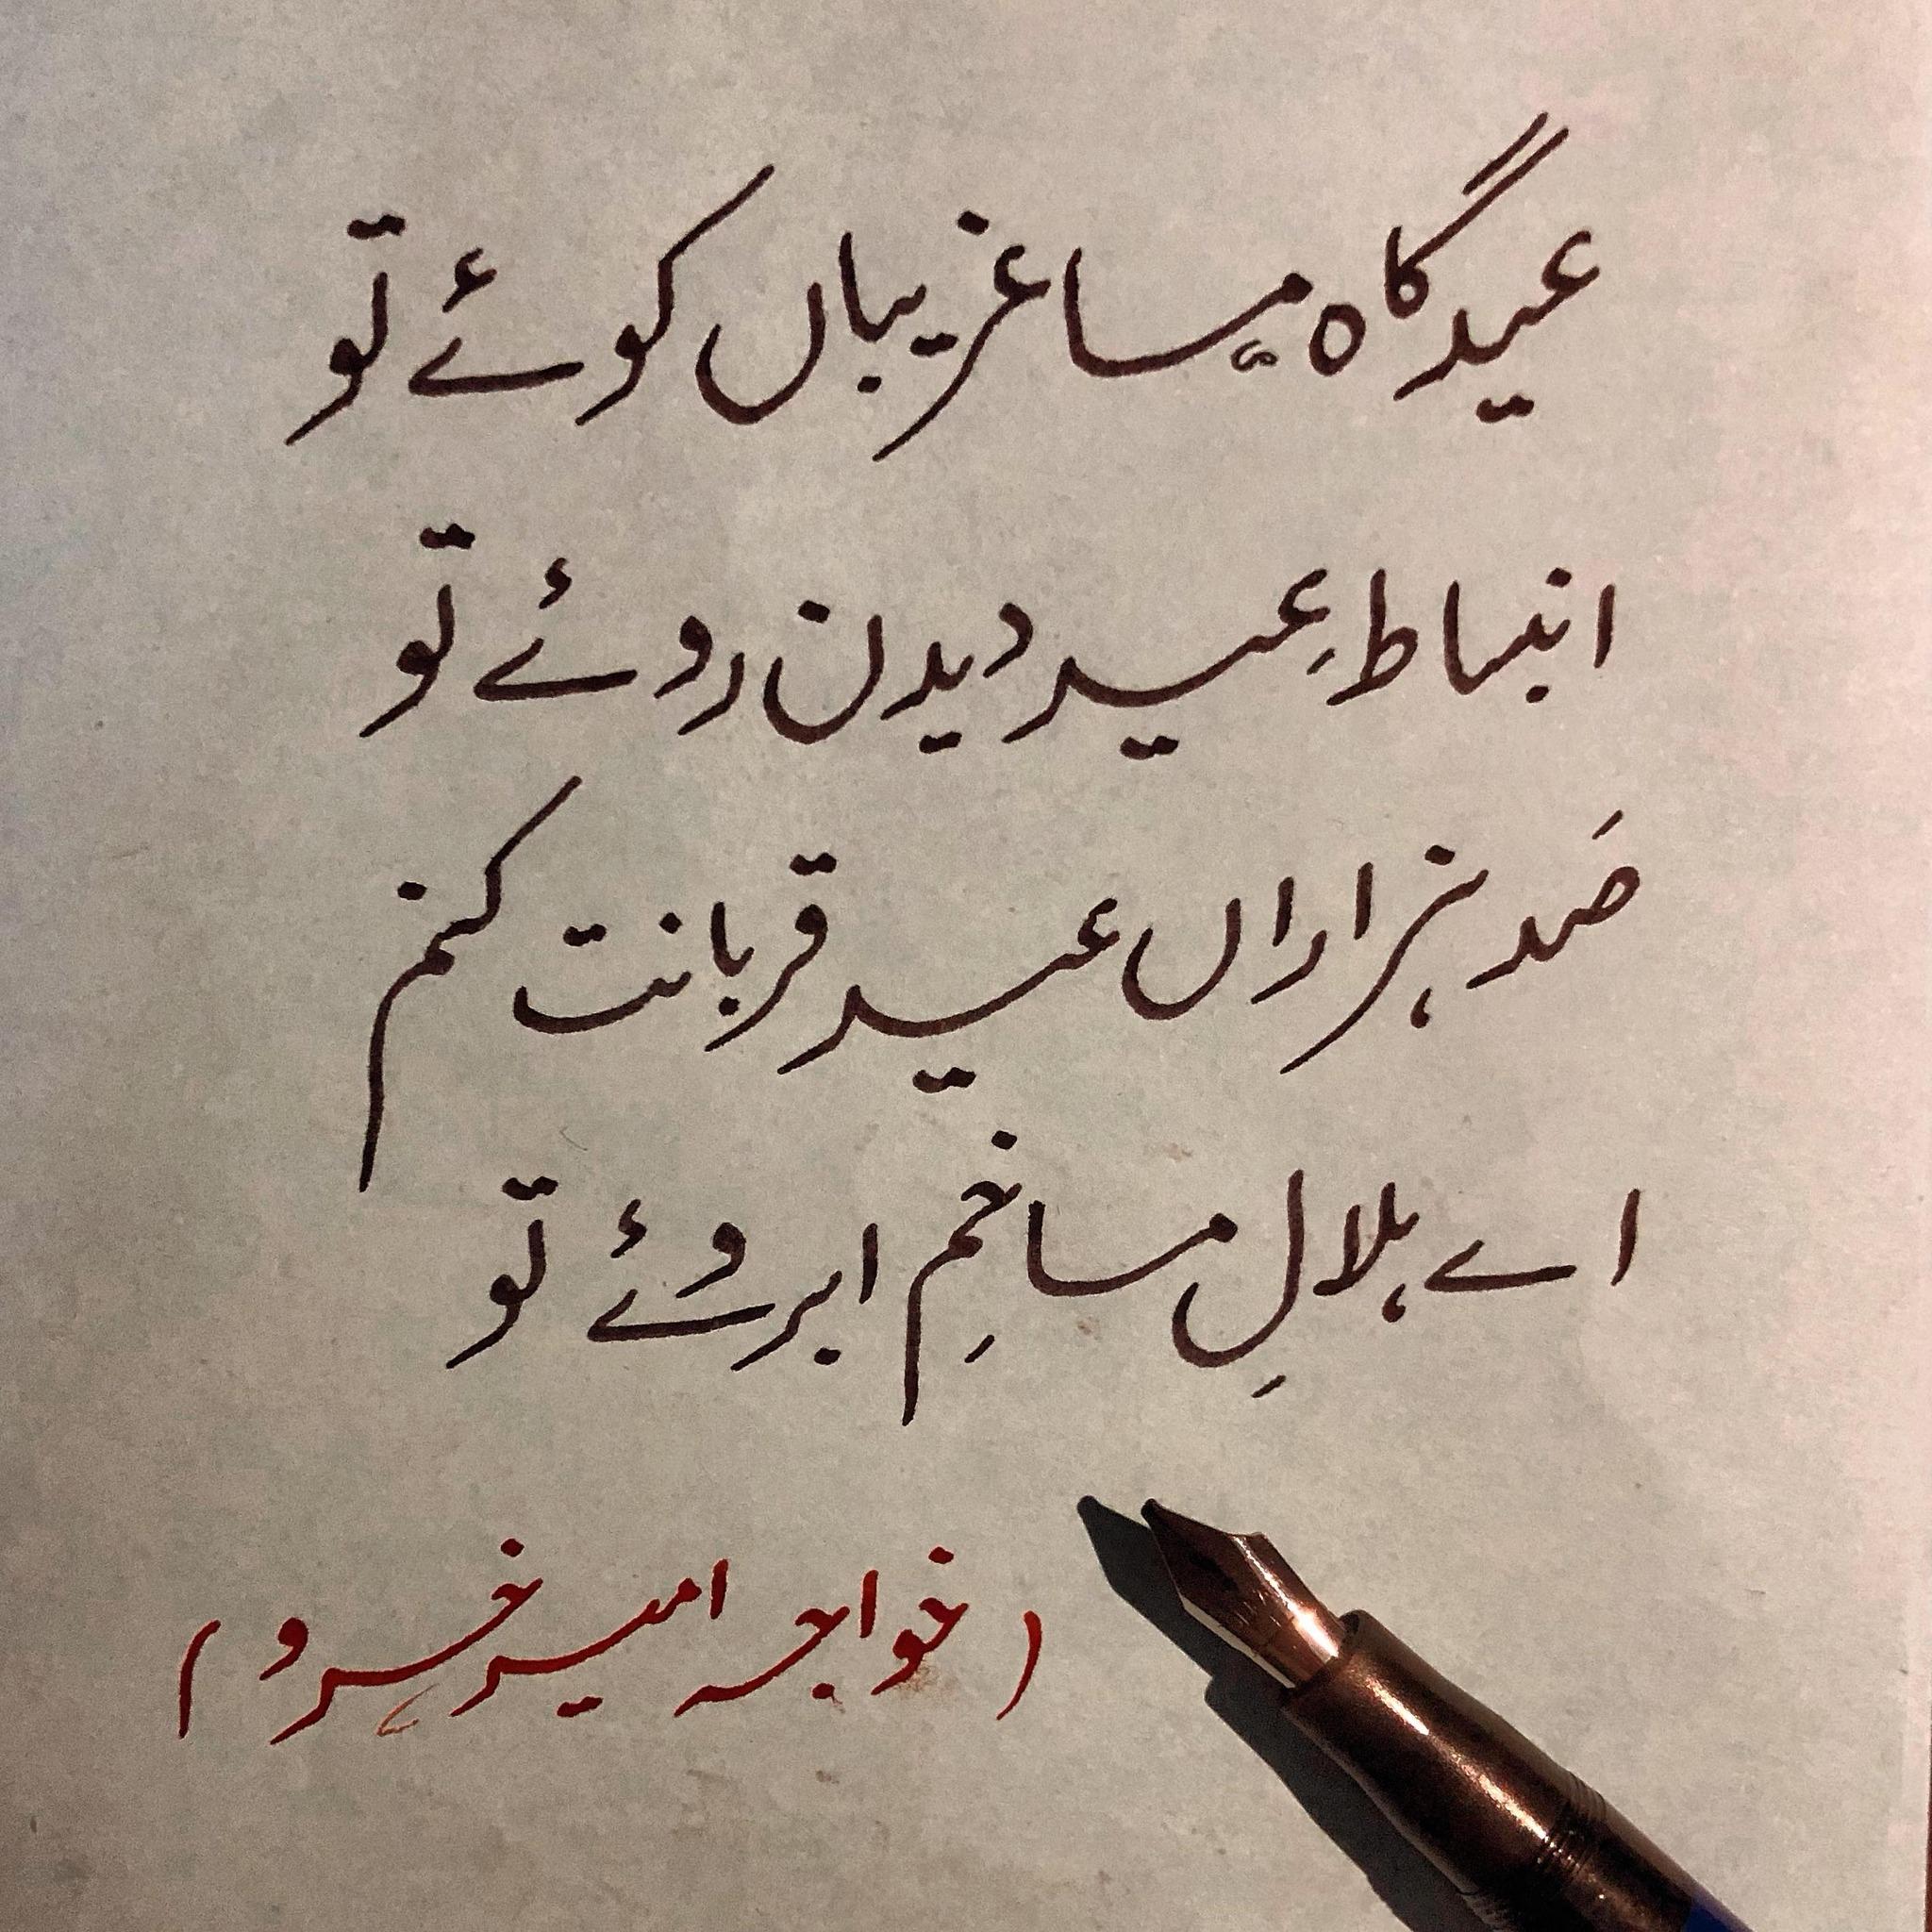 عید گاہ ما غریباں کوئے تو
انبساطِ عید دیدن روئے تو
صَد ہزاراں عید قربانت کنم
اے ہلالِ ما خمِ ابروئے تو
(خواجہ امیر خسرو)